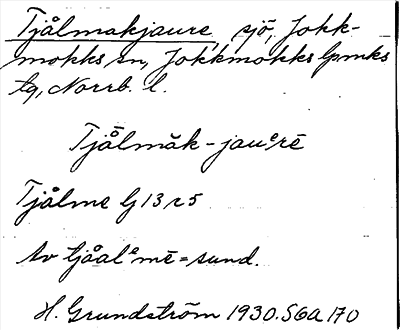 Tjålmakjaure, sjö, Jokk-
mokks sn, Jokkmokks lpmks
tg, Norrb. l.
Tjålmāk-jauᵉrē
Tjålme lj 13 r 5
Av tjåalᵉmē = sund.
H. Grundström 1930. S6a 170